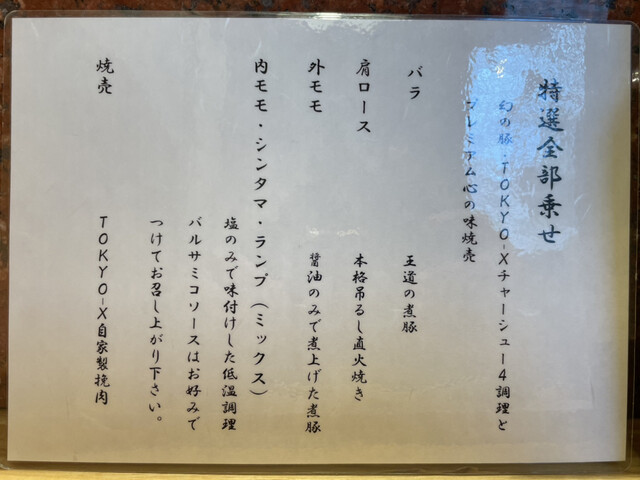 特選全部乗せ
幻の豚・TOKYO-Xチャーシュー4調理と
プレミアム心の味焼売
バラ 王道の煮豚
肩ロース 本格吊るし直火焼き
外モモ 醤油のみで煮上げた煮豚
内モモ・シンタマ・ランプ（ミックス）
塩のみで味付けした低温調理
バルサミコソースはお好みで
つけてお召し上がり下さい。
焼売 TOKYO-X自家製挽肉